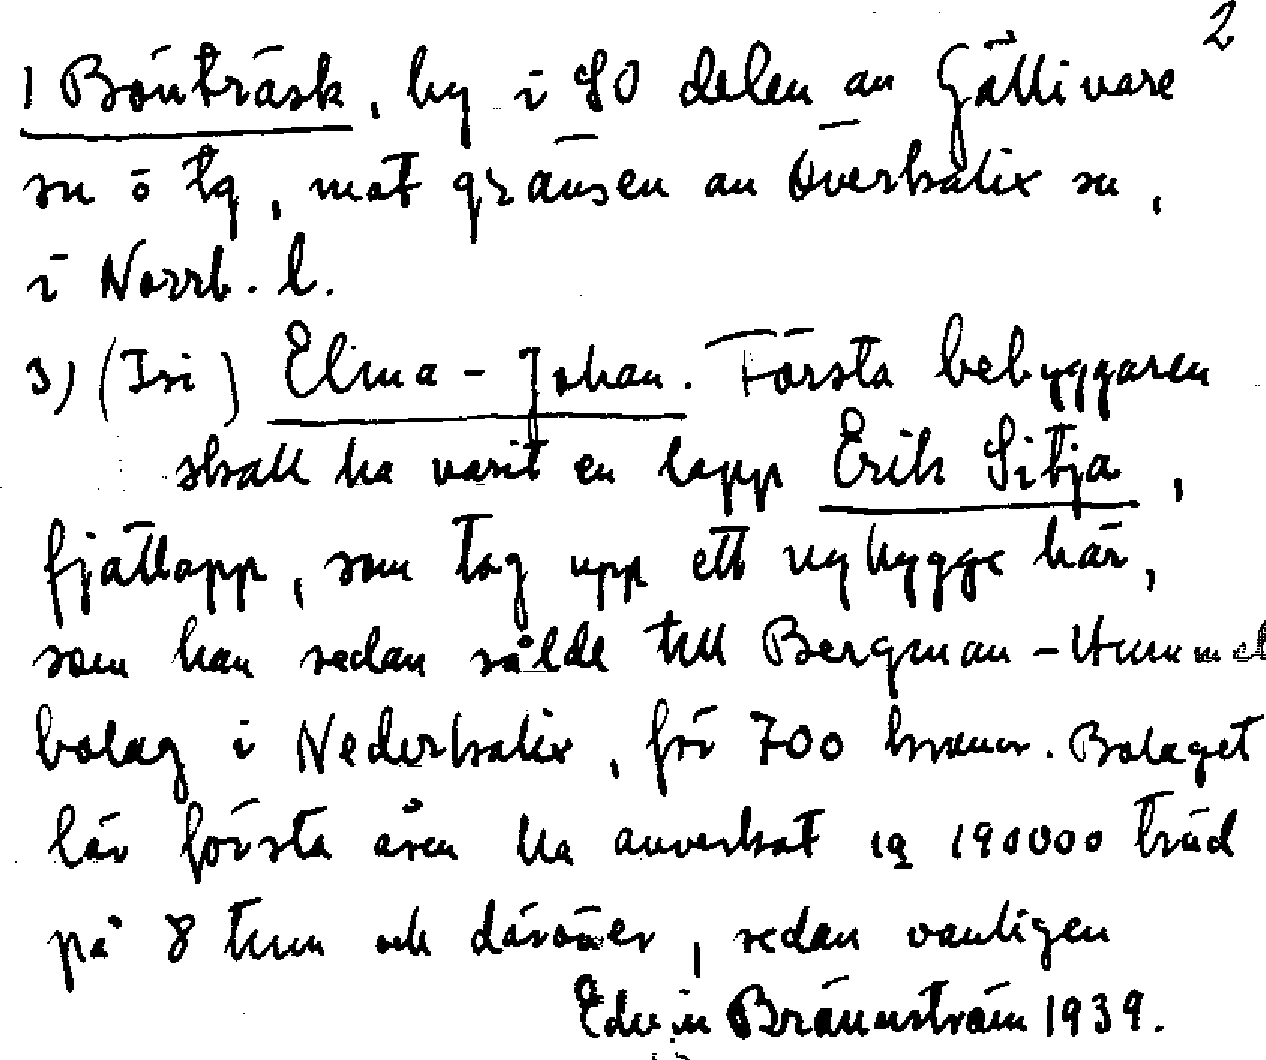 2
1 Bönträsk, by i SO delen av Gällivare
sn o tg, mot gränsen av Överkalix sn,
i Norrb. l.
3) (Isi) Elma-Johan. Första bebyggaren
skall ha varit en lapp Erik Sitja,
fjällapp, som tog upp ett nybygge här,
som han sedan sålde till Bergman-Hummel
bolag i Nederkalix, för 700 kronor. Bolaget
lär första åren ha avverkat 190000 träd
på 8 tum och däröver, sedan vanligen
Edvin Brännström 1939.